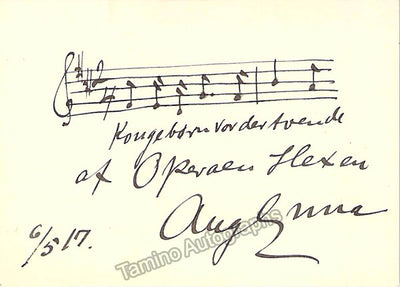 2
4
Kongebørn var der tvende
af Operaen Hexen
Aug Enna
6/5 17.
Tamino Autographs